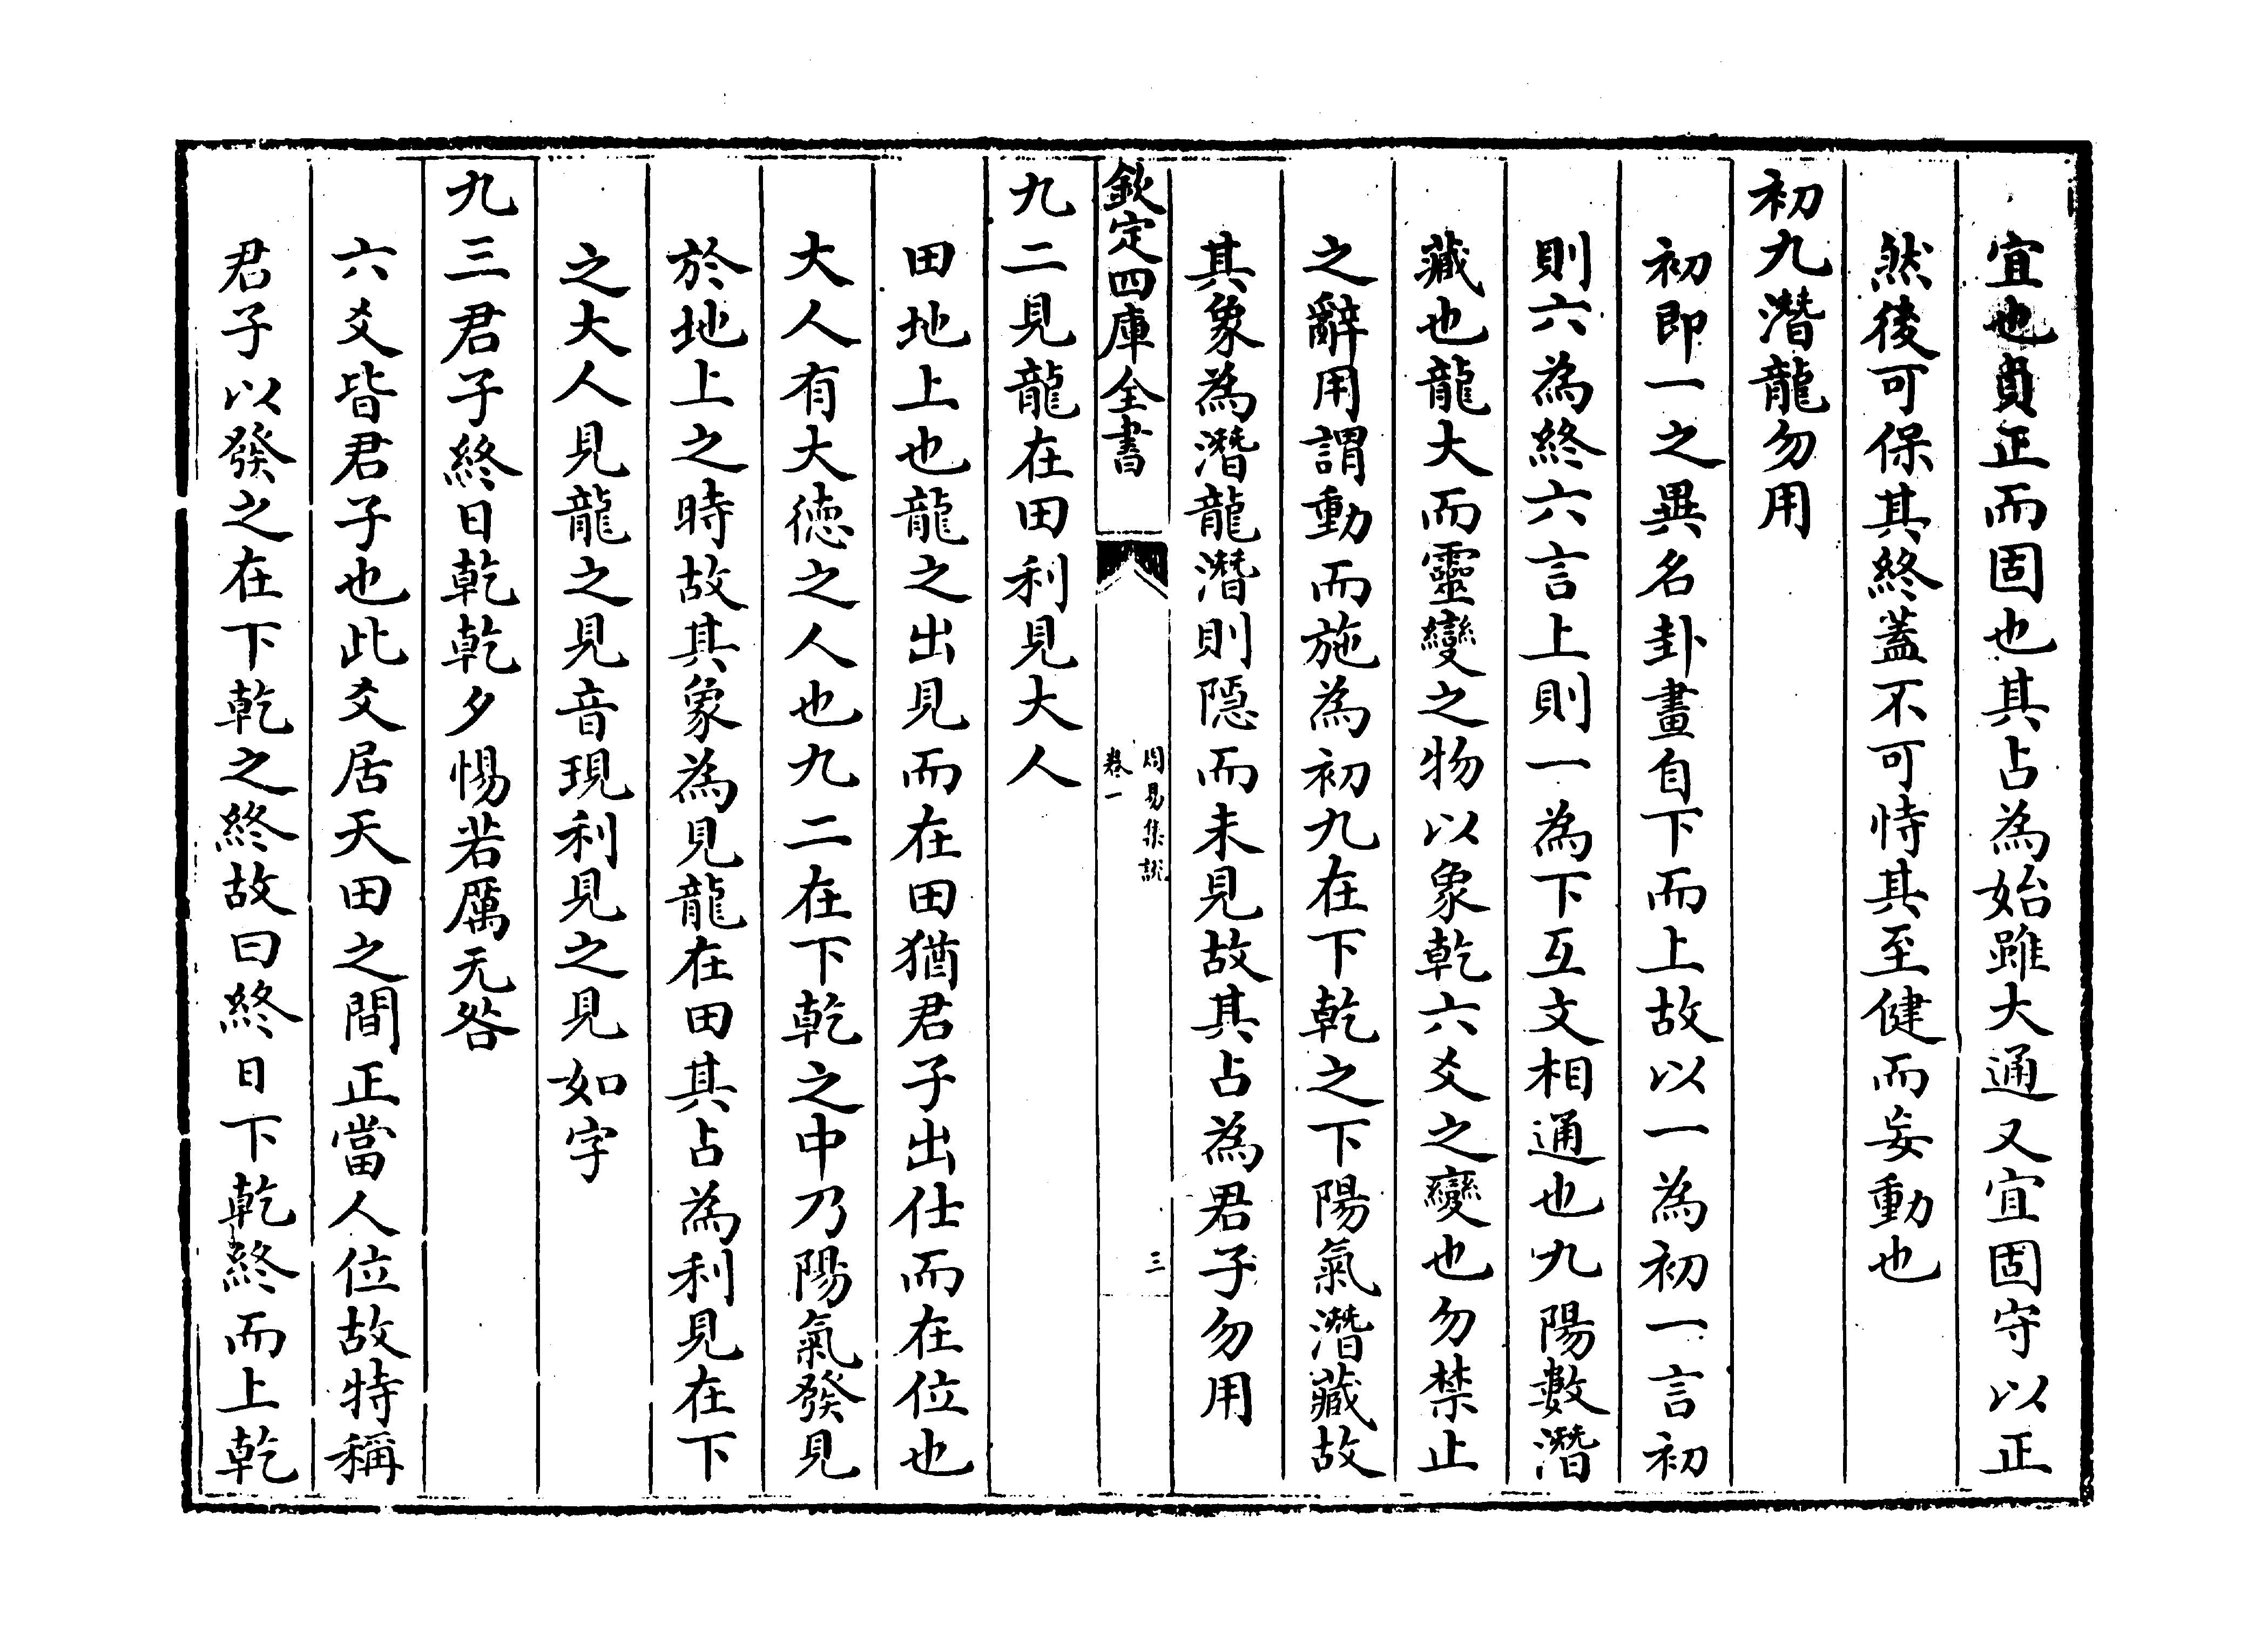 宜也貞正而固也其占為始雖大通又宜固守以正
然後可保其終蓋不可恃其至健而妄動也
初九潛龍勿用
初即一之異名卦畫自下而上故以一為初一言初
則六為終六言上則一為下互文相通也九陽數潛
藏也龍大而靈變之物以象乾六爻之變也勿禁止
之辭用謂動而施為初九在下乾之下陽氣潛藏故
其象為潛龍潛則隱而未見故其占為君子勿用
欽定四庫全書
周易集說
卷一
三
九二見龍在田利見大人
田地上也龍之出見而在田猶君子出仕而在位也
大人有大德之人也九二在下乾之中乃陽氣發見
於地上之時故其象為見龍在田其占為利見在下
之大人見龍之見音現利見之見如字
九三君子終日乾乾夕惕若厲无咎
六爻皆君子也此爻居天田之間正當人位故特稱
君子以發之在下乾之終故曰終日下乾終而上乾